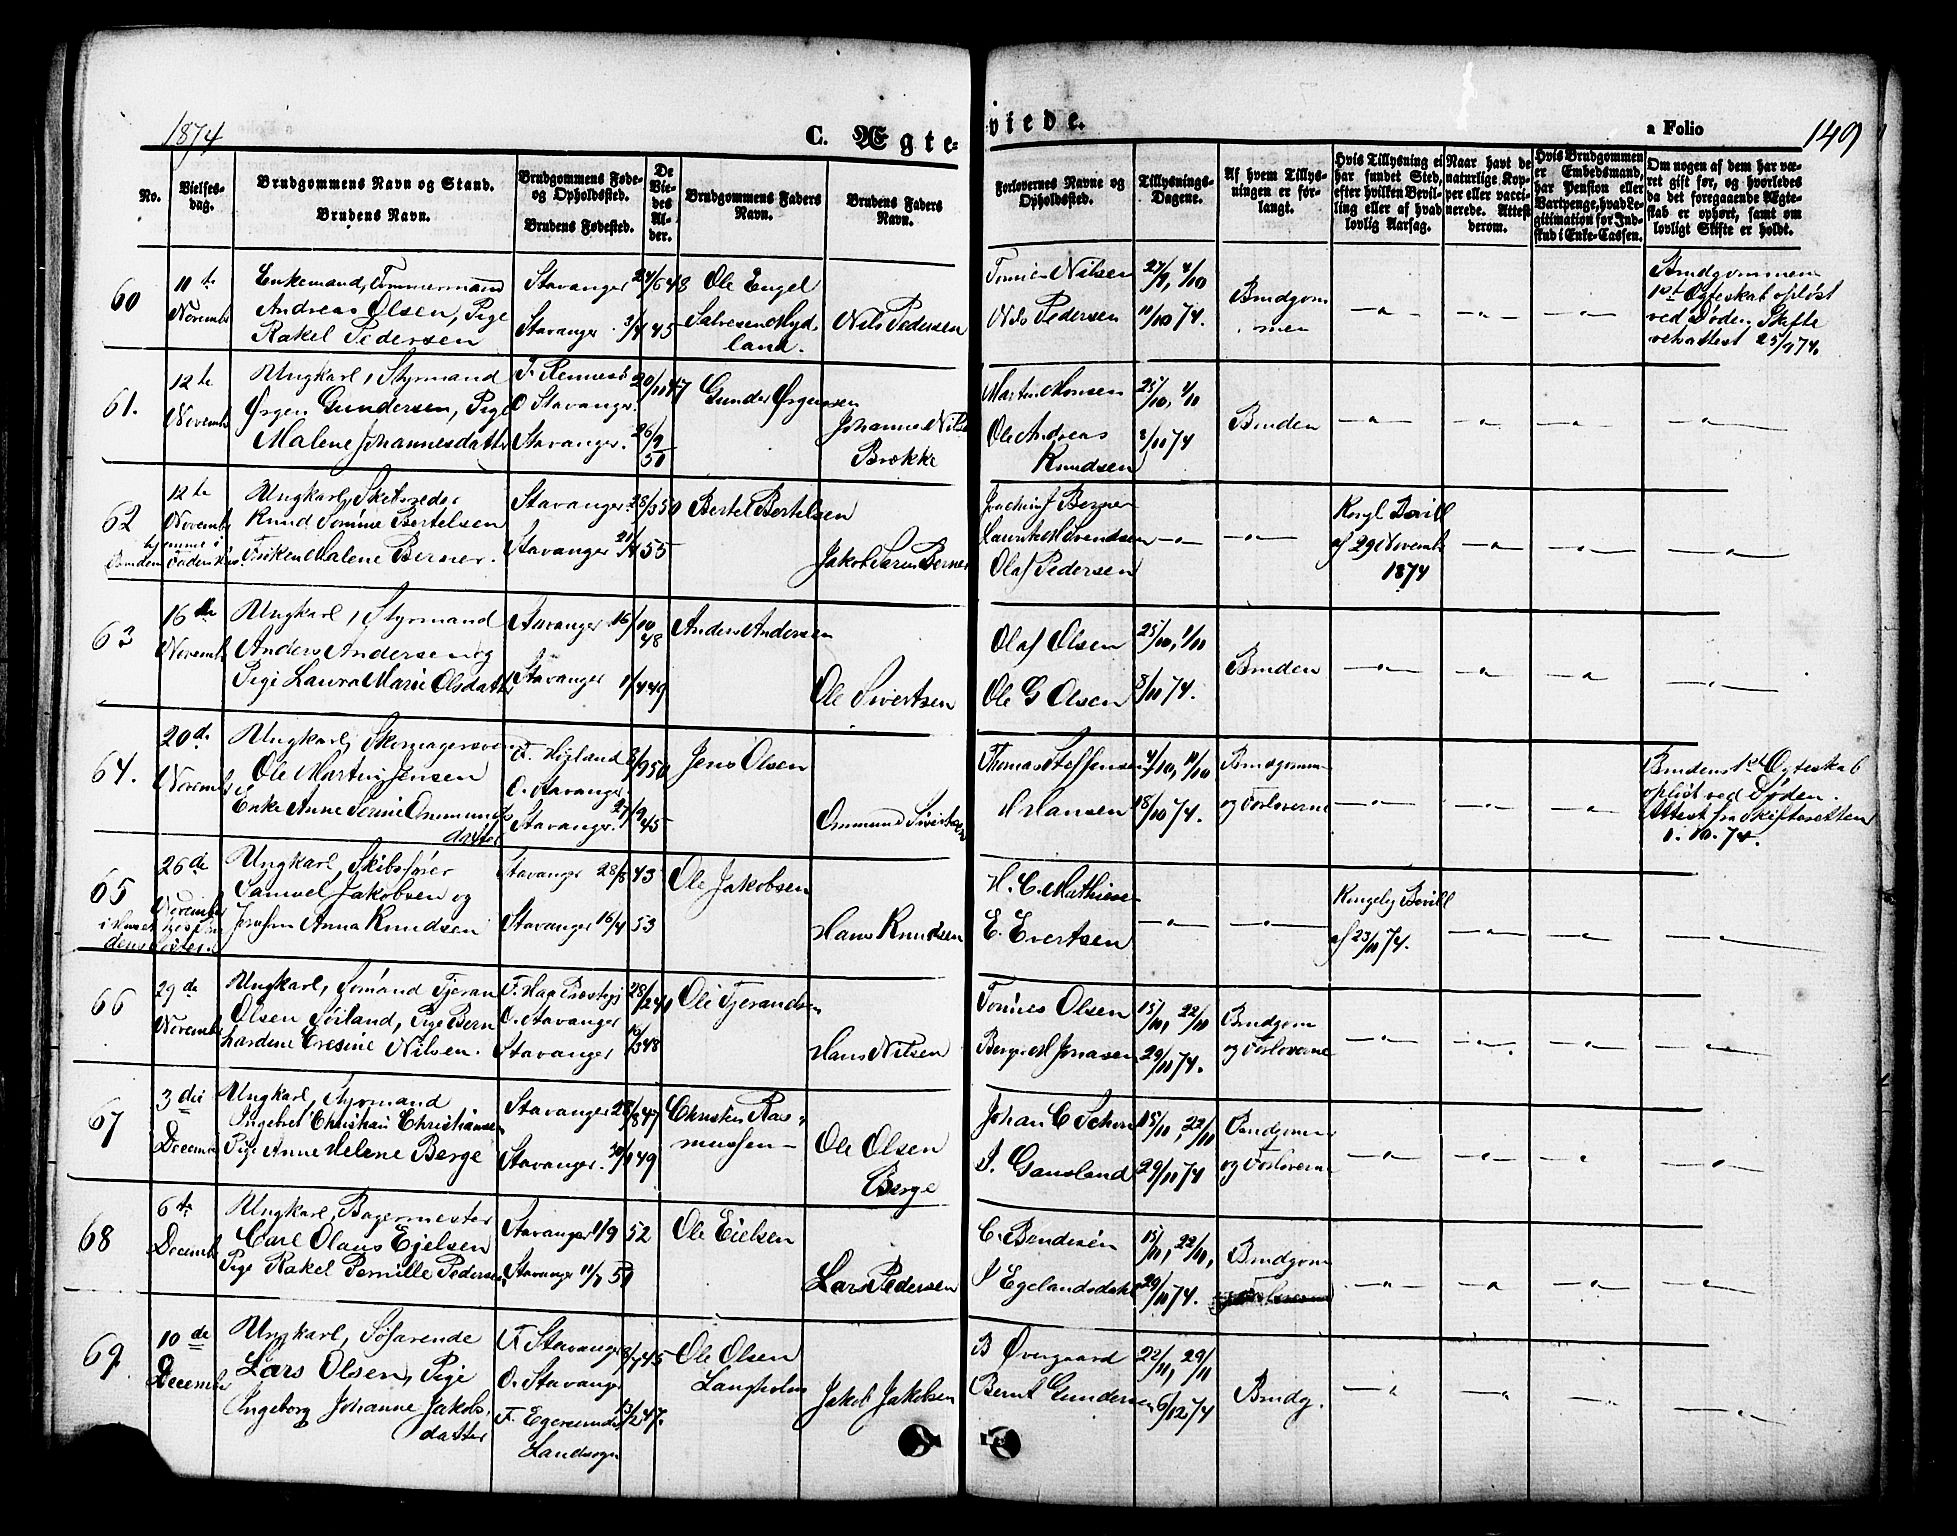 1874
C. Ægte-
viede.
a Folio
149
No.
Vielses-
dag.
Brudgommens Navn og Stand.
Brudens Navn.
Brudgommens Føde-
og Opholdssted.
Brudens Fødested.
De
Vie-
des
Al-
der.
Brudgommens Faders
Navn.
Brudens Faders
Navn.
Forlovernes Navne og
Opholdssted.
Tillysnings-
Dagene.
Af hvem Tillys-
ningen er for-
langt.
Hvis Tillysning ei
har fundet Sted,
efter hvilken Bevil-
ling eller af hvad
lovlig Aarsag.
Naar havt de
naturlige Kop-
per eller vacci-
nerede. Attest
derom.
Hvis Brudgommen
er Embedsmand,
har Pension eller
Vartpenge, hvad Le-
gitimation for Ind-
skud i Enke-Cassen.
Om nogen af dem har væ-
ret gift før, og hvorledes
da det foregaaende Ægte-
skab er ophørt, samt om
lovligt Skifte er holdt.
60
11te
Novemb
Enkemand, Tømmermand
Andreas Olsen, Pige
Rakel Pedersen
Stavanger 24/6 48
Stavanger 3/4 45
Ole Engel
Salvesen Myd
land.
Nils Pedersen
Nilsen
Nils Pedersen
27/9, 4/10
11/10 74.
Brudgom
men
Brudgommens
1ste Ægteskab opløst
ved Døden Skifte
retsattest 25/9 74.
61.
12te
Novemb
Ungkarl, Styrmand
Ørgen Gundersen, Pige
Malene Johannesdatter
F. Rennesø
O Stavanger.
Stavanger.
20/10 47
26/9
51
Gunder Ørgensen
Johannes Nils
Brokke
Martin Monsen
Ole Andreas
Knudsen
25/10, 1/10
8/11 74
Bruden
62
12te
Novemb
hjemme i
Brudens Faders Hus.
Ungkarl, Skibsreder
Knud Tomine Bertelsen
Frøken Malene Berner.
Stavanger 28/3 50
Stavanger 21/4 55
Bertel Bertelsen
Jakob Berner
Jochim J Berner
Laurits M Svendsen
Olaf Pedersen
Kongl Bevill
af 29 Novemb
1874
63
16de
Novemb
Ungkarl, Styrmand
Anders Andersen og
Pige Laura Marie Olsdatter
Stavanger 16/10
48
Stavanger 1/4 49
Anders Andersen
Ole Sivertsen
Olaf Olsen
Ole G Olsen
25/10, 1/10
8/11 74.
Bruden
64.
20de
Novemb
Ungkarl, Skomagersven
Ole Martin Jensen
Enke Anne Serine Ommunds
datter
F. Høgland
O. Stavanger
Stavanger.
8/9 50
27/9
45
Jens Olsen
Ommund Sivertsen
Thomas Steffensen
H Hansen
4/10, 11/10
18/10 74.
Brudgommen
og Forloverne
Brudens 1ste Ægteskab
opløst ved Døden.
Attest fra Skifteretten
1.10.74.
65
26de
November
i Huset hos Bru
dens
Ungkarl, Skibsfører
Samuel Jakobsen og
Jomfru Anna Knudsen
Stavanger 28/8 43
Stavanger 16/4 53
Ole Jakobsen
Hans Knudsen
H. C. Mathiesen
E. Evertsen
Kongelig Bevill
af 23/11 74.
66
29de
Novemb
Ungkarl, Sømand Tjeran
Olsen Søiland, Pige Bern
hardene Nilsen.
F. Haa Præstegj
O. Stavanger
Stavanger
28/2 41
12/3 48
Ole Tjerandsen
Hans Nilsen
Tønnes Olsen
Berge M Jonasen
15/11, 22/11
29/11 74.
Brudgom
og Forloverne
67
3die
Decemb
Ungkarl, Styrmand
Ingebret Christian Christiansen
Pige Anne Helene Berge
Stavanger 28/8 47
Stavanger. 49
Christen Ras-
mussen
Ole Olsen
Berge
Johan C
S. Gausland
15/11, 22/11
29/11 74
Brudgommen
og Forloverne
68
6te
Decemb
Ungkarl, Bagermester
Carl Olaus Ejelsen
Pige Rakel Pernille Pedersen
Stavanger 11/9 52
Stavanger 11/7 51
Ole Eielsen
Lars Pedersen
C. Bendixen
S Egelandsdal
15/11, 22/11,
29/11 74.
Brudgom
69.
10de
Decemb
Ungkarl, Søfarende
Lars Olsen, Pige
Ingeborg Johanne Jakobs,
datter
F. Stavanger
O. Stavanger
F. Egersunds
Landsogn
8/7 45
13/2 47.
Ole Olsen
Langholm
Jakob Jakobsen
B Øvergaard
Bernt Gundersen
22/11, 29/11
6/12 74
Brudg.